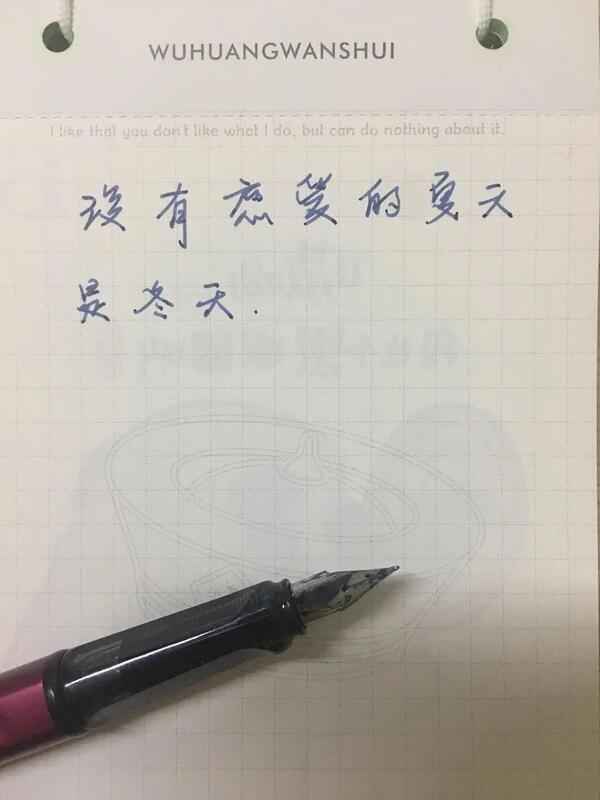 WUHUANGWANSHUI
I like that you don't like what I do, but can do nothing about it.
没有恋爱的夏天
是冬天.